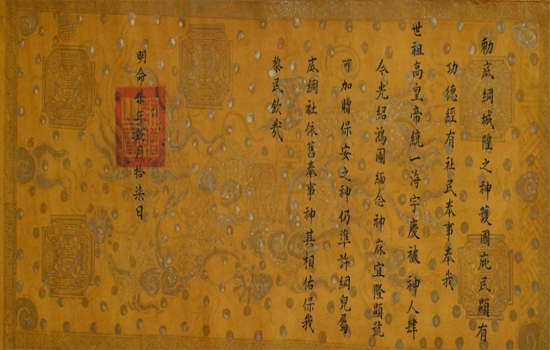 勅底綱城隍之神護國庇民顯有
功德經有社民奉事奉我
世祖高皇帝統一海宇慶被神人肆
今光紹鴻圖緬念神庥宜隆顯號
可加贈保安之神仍準許綱兒屬
底綱社依舊奉事神其相佑保我
黎民欽哉
明命年月拾柒日